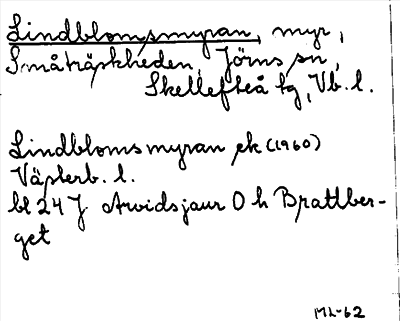 Lindblomsmyran, myr,
Småträskheden, Jörns sn,
Skellefteå tg, Vb. l.
Lindblomsmyran ek (1960)
Västerb. l.
bl 24 J Arvidsjaur O h Brattber-
get
ML-62